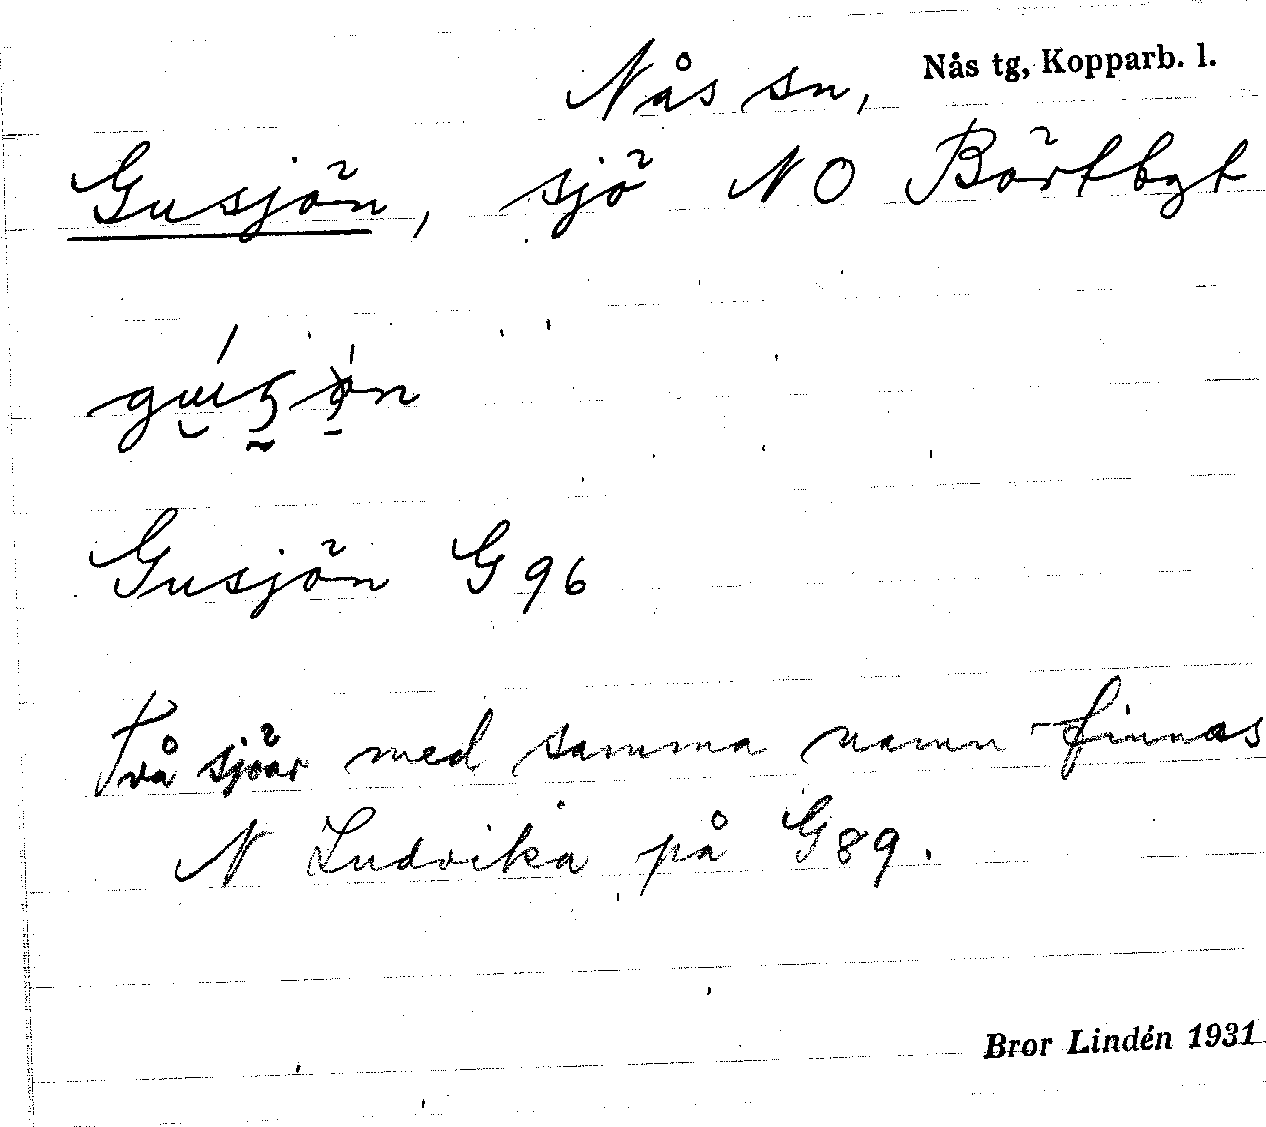 Nås sn, Nås tg, Kopparb. l.
Gusjön, sjö NO Börtbgt
Gusjön G 96
Två sjöar med samma namn finnas
N Ludvika på G89.
Bror Lindén 1931